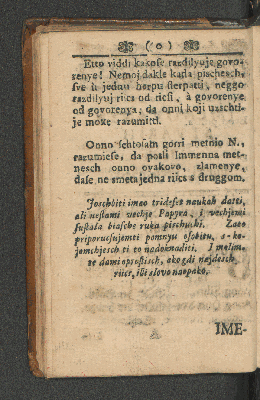 ( 0 )
Etto viddi kakose razdilyuje govo-
renye! Nemoj dakle kada pischesch,
sve u jednu herpu sterpatti, neggo
razdilyuj riics od ricsi, à govorenye
od govorenya; da onni koji uzschti-
je moxe razumitti.
Onno schtosam gorri metnio N.,
razumiese, da posli Immenna met-
nesch onno ovakovo, zlamenye,
dase ne smeta jedna riics s druggom.
Joschbiti imao tridese naukah datti,
ali nestami vechje Papyra, i vechjemi
sustala biasche ruka pischuchi. Zato
priporucsujemti pomnyu osobitu, s-ko-
jomchjesch ti to nadoknaditi. I molim-
se dami oprostisch, ako gdi najdesch
riics, ili slovo naopako.
IME-